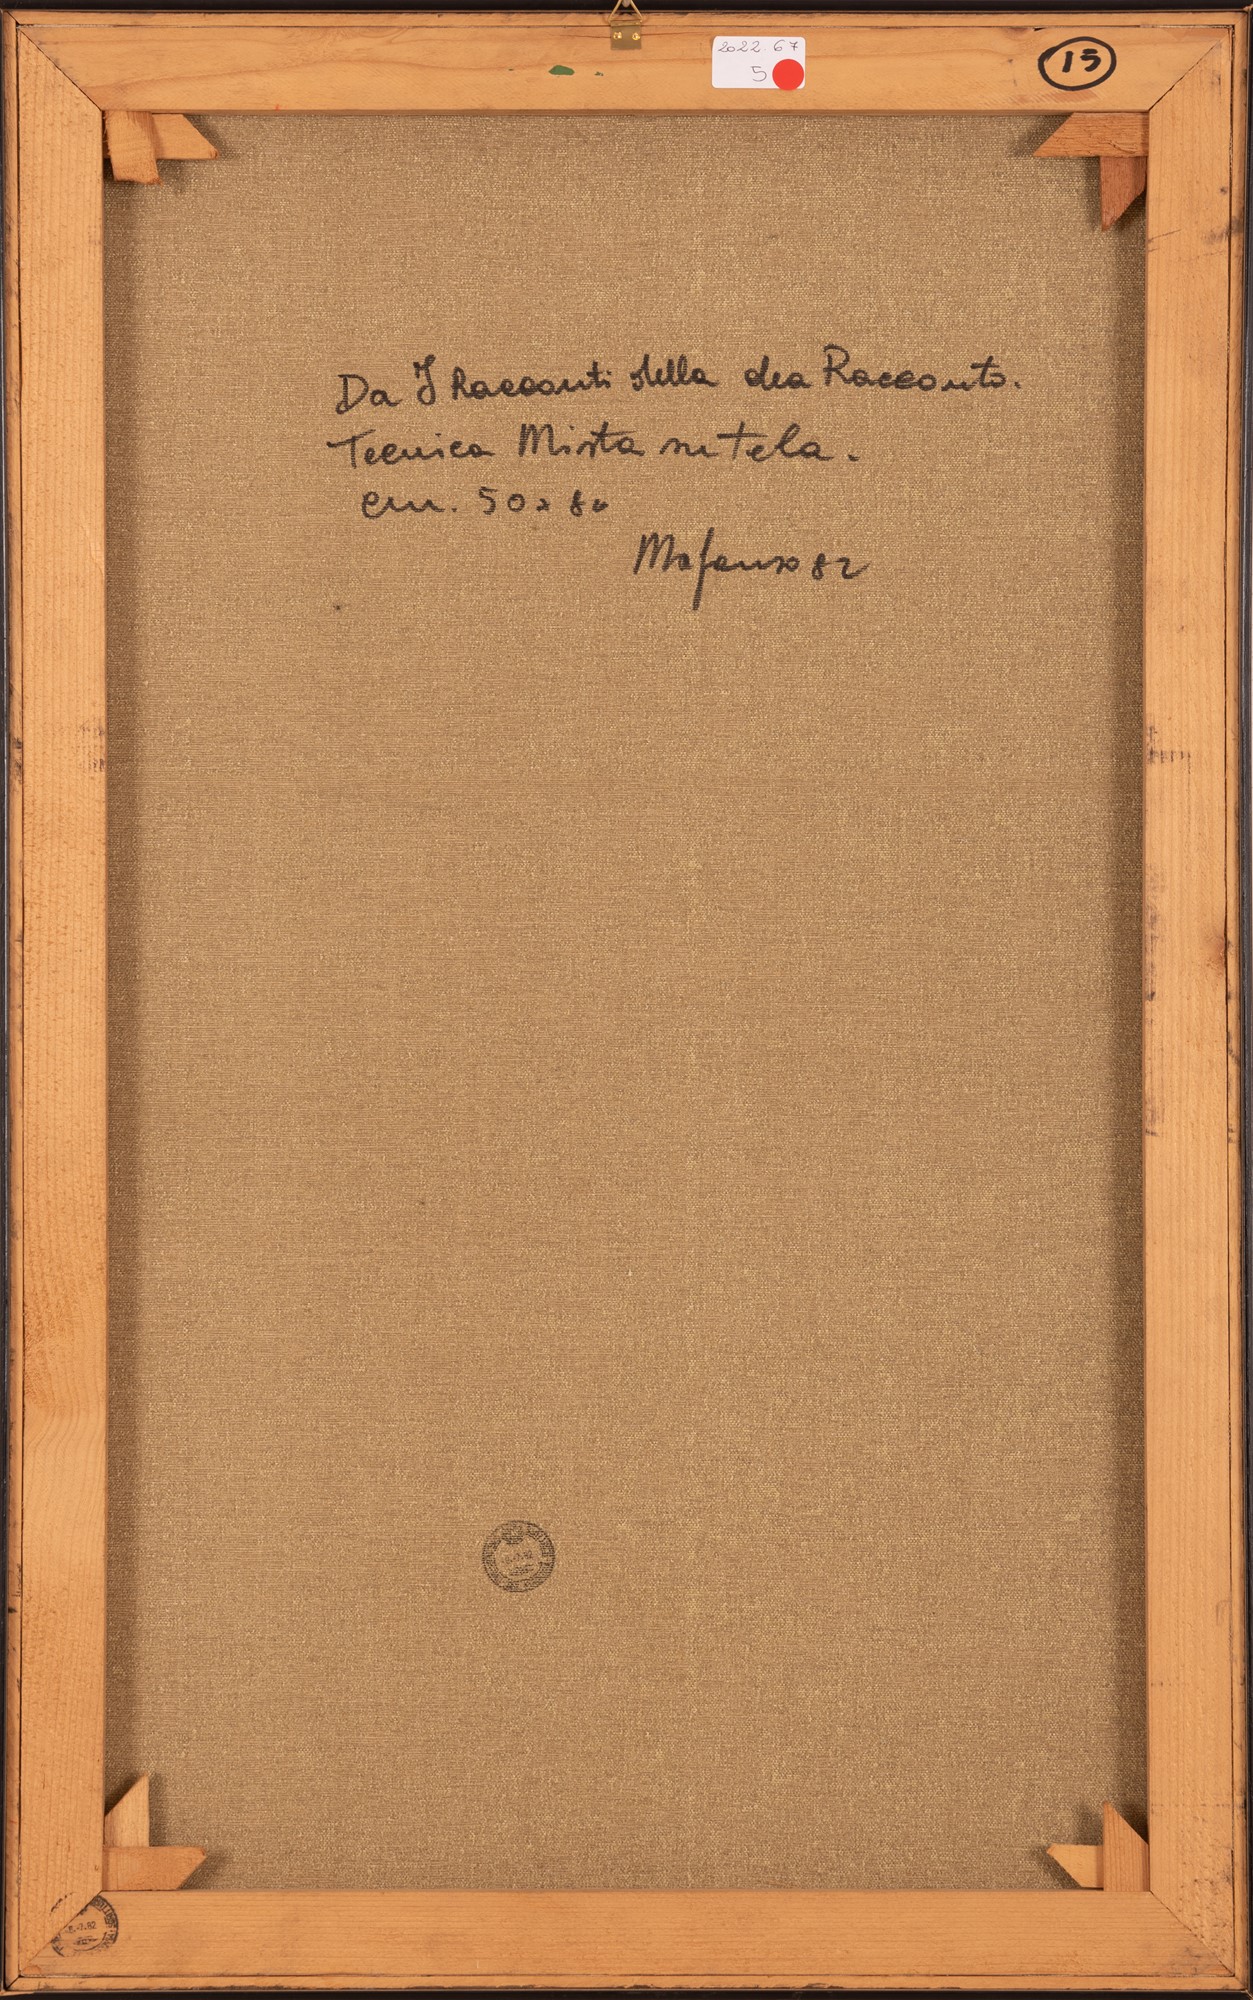 2022 67
5
15
Da I Racconti della dea Racconto.
Tecnica Mista su tela.
cm. 50x80
Mafonso 82